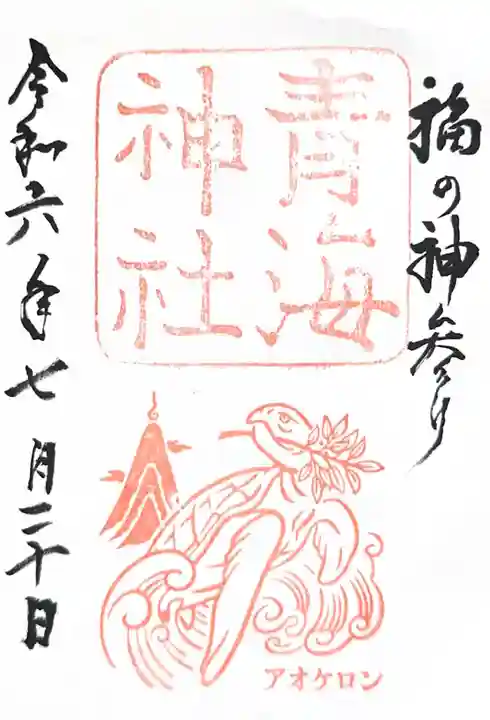 福の神参り
青海
神社
令和六年七月二十日
アオケロン